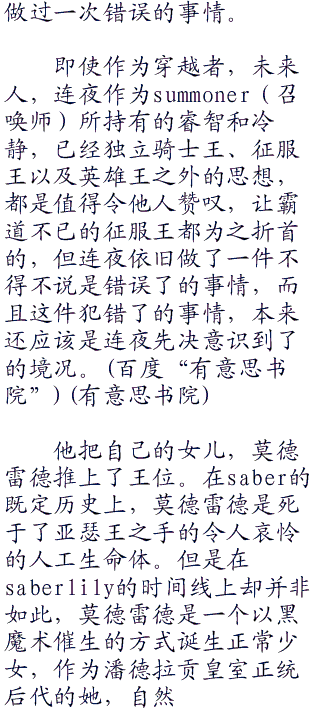 做过一次错误的事情。
即使作为穿越者，未来
人，连夜作为summoner（召
唤师）所持有的睿智和冷
静，已经独立骑士王、征服
王以及英雄王之外的思想，
都是值得令他人赞叹，让霸
道不已的征服王都为之折首
的，但连夜依旧做了一件不
得不说是错误了的事情，而
且这件犯错了的事情，本来
还应该是连夜先决意识到了
的境况。(百度“有意思书
院”)(有意思书院)
他把自己的女儿，莫德
雷德推上了王位。在saber的
既定历史上，莫德雷德是死
于了亚瑟王之手的令人哀怜
的人工生命体。但是在
saberlily的时间线上却并非
如此，莫德雷德是一个以黑
魔术催生的方式诞生正常少
女，作为潘德拉贡皇室正统
后代的她，自然